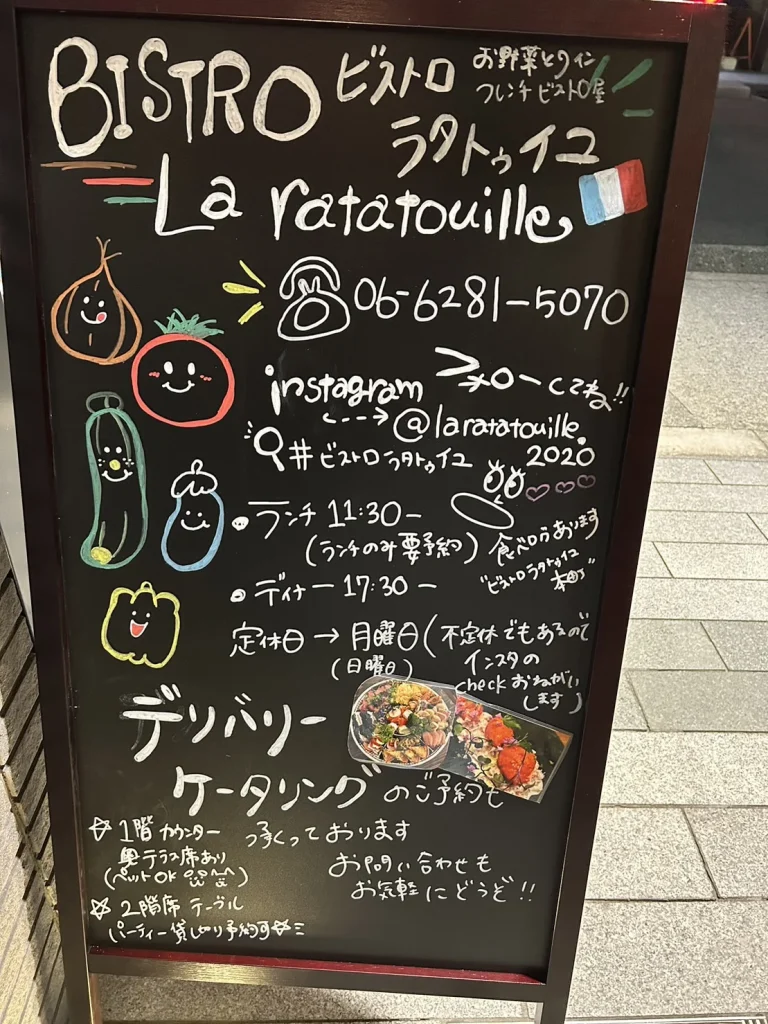 BISTRO ビストロ
お野菜とワイン
フレンチビストロ屋
ラタトゥイユ
La ratatouille
06-6281-5070
instagram フォローしてね!!
@laratatouille.
2020
#ビストロラタトゥイユ
・ランチ 11:30-
(ランチのみ要予約)
食べログあります
"ビストロラタトゥイユ
本町"
・ディナー 17:30-
定休日→月曜日(不定休でもあるので
(日曜日)
インスタの
checkおねがい
します)
デリバリー
ケータリングのご予約も
承くっております
お問い合わせも
お気軽にどうぞ!!
☆1階カウンター
奥テラス席あり
(ペットOK)
☆2階席 テーブル
パーティー貸し切り予約可☆